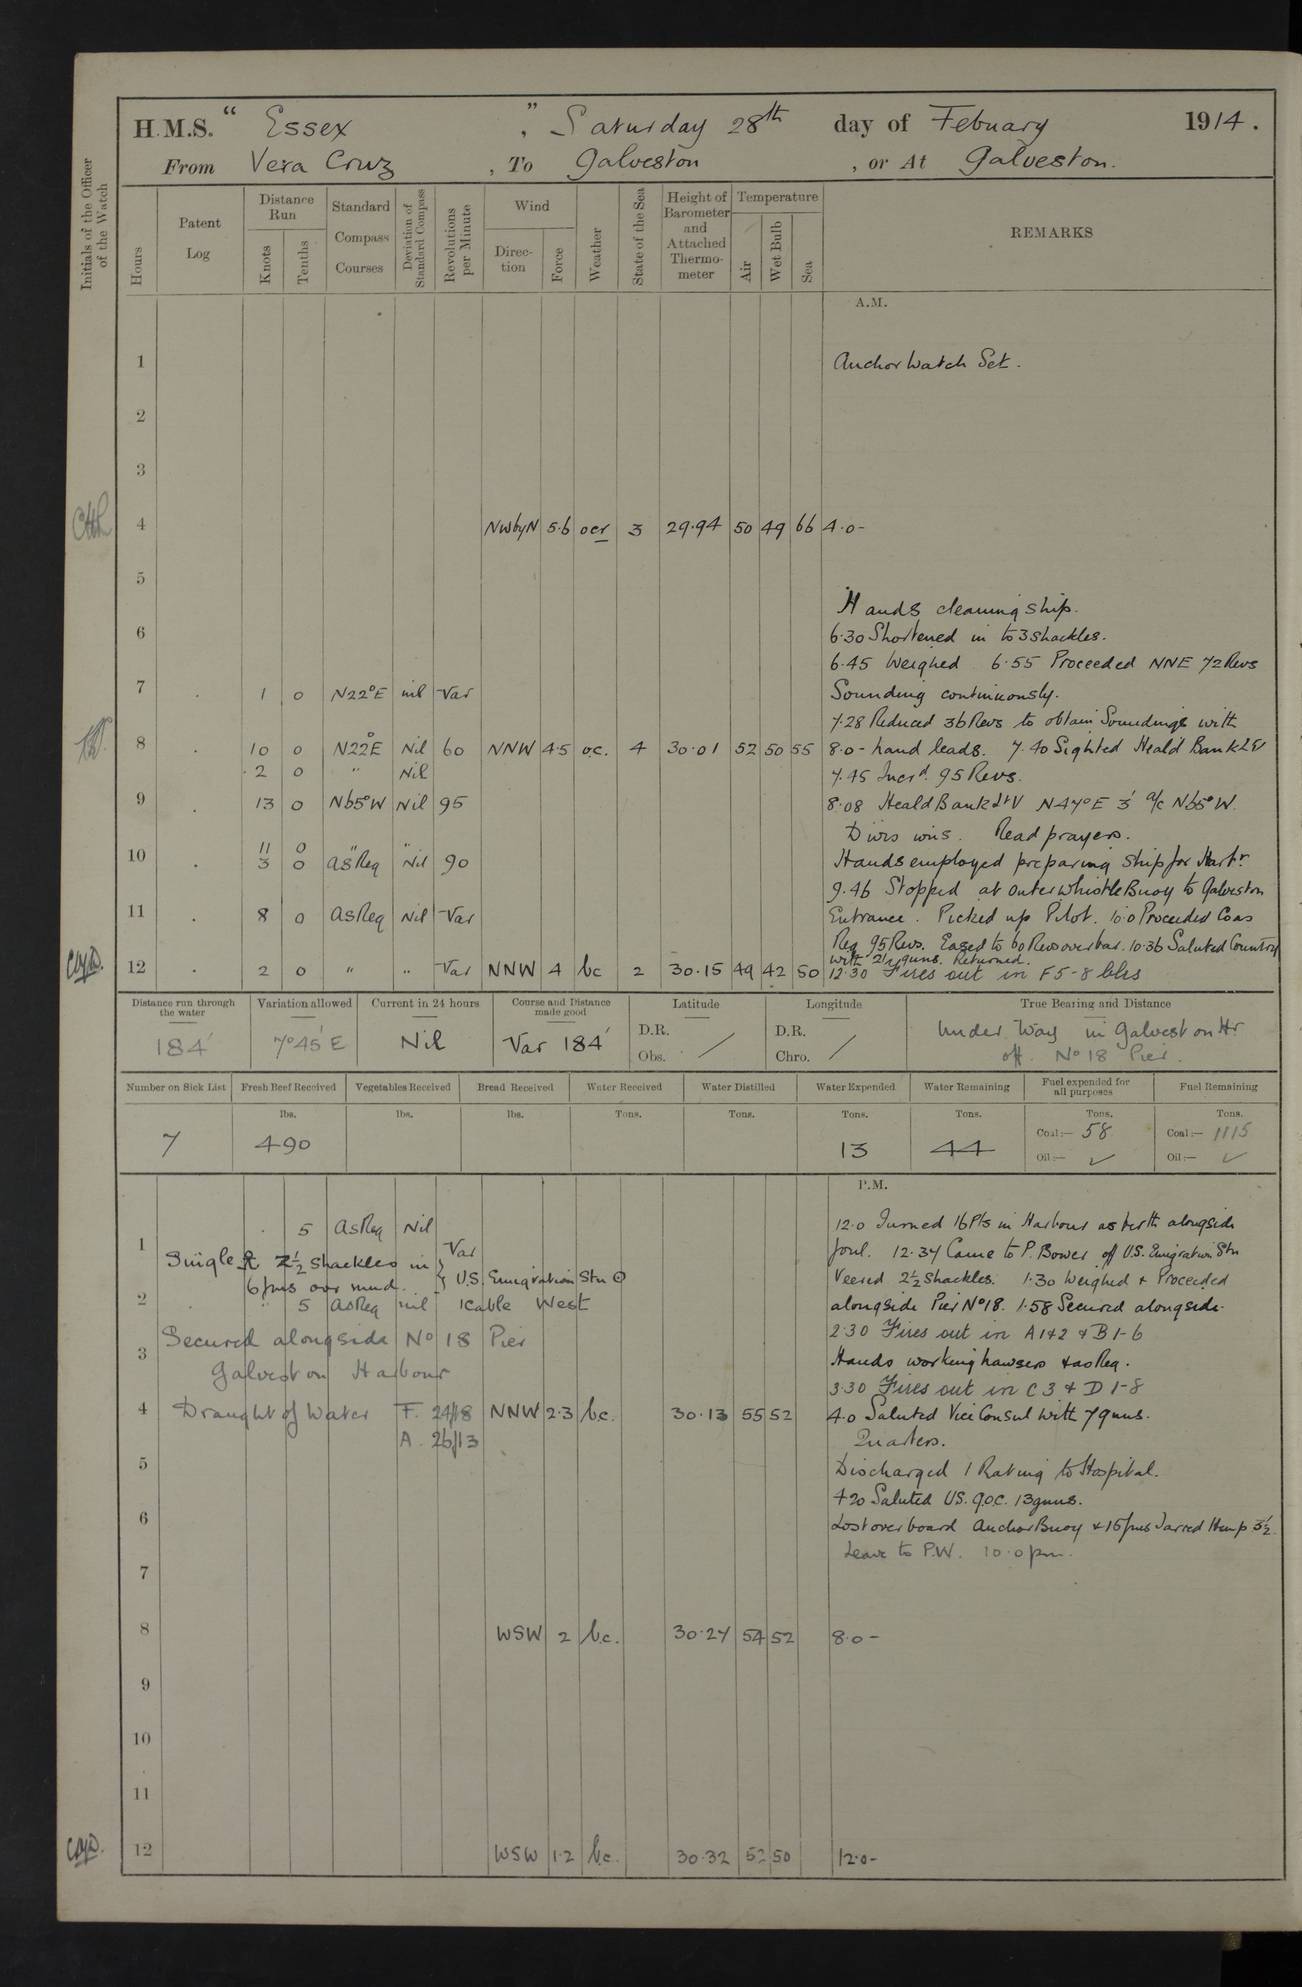 H.M.S. “ Essex ” , Saturday 28th day of Febuary 1914.
From Vera Cruz , To Galveston , or At Galveston.
Initials of the Officer of the Watch
Hours
Patent Log
Distance Run
Knots
Tenths
Standard Compass Courses
Deviation of Standard Compass
Revolutions per Minute
Wind
Direction
Force
Weather
State of the Sea
Height of Barometer and Attached Thermometer
Temperature
Air
Wet Bulb
Sea
REMARKS
A.M.
1 Anchor Watch Set.
2
3
4 NWbyN 5.6 ocr 3 29.94 50 49 66 4.0-
5
Hands cleaning ship.
6 6.30 Shortened in to 3 shackles.
6.45 Weighed 6.55 Proceeded NNE 72 Revs
7 . 1 0 N22°E nil Var Sounding continuously.
7.28 Reduced 36 Revs to obtain Soundings with
8 . 10 0 N22°E Nil 60 NNW 4.5 o.c. 4 30.01 52 50 55 8.0- hand leads. 7.40 Sighted Heald Bank LV
. 2 0 " Nil 7.45 Incrd. 95 Revs.
9 . 13 0 N65°W Nil 95 8.08 Heald Bank Lt V N47°E 3' a/c N65°W.
Divs. Read prayers.
11 0 " "
10 . 3 0 as Req Nil 90 Hands employed preparing ship for Harbr.
9.46 Stopped at outer whistle Buoy to Galveston
11 . 8 0 As Req Nil Var Entrance. Picked up Pilot. 10.0 Proceeded Co as
Req 95 Revs. Eased to 60 Revs over bar. 10.36 Saluted Country
with 21 guns. Returned.
12 . 2 0 " " Var NNW 4 bc 2 30.15 49 42 50 12.30 Fires out in F 5-8 blrs
Distance run through the water
Variation allowed
Current in 24 hours
Course and Distance made good
Latitude
Longitude
True Bearing and Distance
184'
7°45'E
Nil
Var 184'
D.R.
Obs.
D.R.
Chro.
Under Way in Galveston Hr
off No 18 Pier.
Number on Sick List
Fresh Beef Received
Vegetables Received
Bread Received
Water Received
Water Distilled
Water Expended
Water Remaining
Fuel expended for all purposes
Fuel Remaining
lbs. lbs. lbs. Tons. Tons. Tons. Tons. Tons. Tons.
7 490 13 44
Coal:— 58
Oil:— ✓
Coal:— 1115
Oil:— ✓
P.M.
. 5 As Req Nil 12.0 Turned 16 Pts in Harbour as berth alongside
1 Var foul. 12.34 Came to P. Bower off U.S. Emigration Stn
Single 2½ Shackles in } U.S. Emigration Stn ⊙ Veered 2½ Shackles. 1.30 Weighed & Proceeded
6 fms over mud.
2 . " 5 As Req nil 1 cable West alongside Pier No 18. 1.58 Secured alongside.
Secured alongside No 18 Pier 2.30 Fires out in A 1&2 & B 1-6
3 Hands working hawsers & as Req.
Galveston Harbour 3.30 Fires out in C 3 & D 1-8
4 Draught of Water F. 24/18 NNW 2.3 b.c. 30.13 55 52 4.0 Saluted Vice Consul with 7 guns.
A. 26/13 Quarters.
5 Discharged 1 Rating to Hospital.
4.20 Saluted US. G.O.C. 13 guns.
6 Lost overboard Anchor Buoy & 15 fms Tarred Hemp 3½
Leave to P.W. 10.0 pm.
7
8 WSW 2 b.c. 30.27 54 52 8.0-
9
10
11
12 WSW 1.2 b.c. 30.32 52 50 12.0-